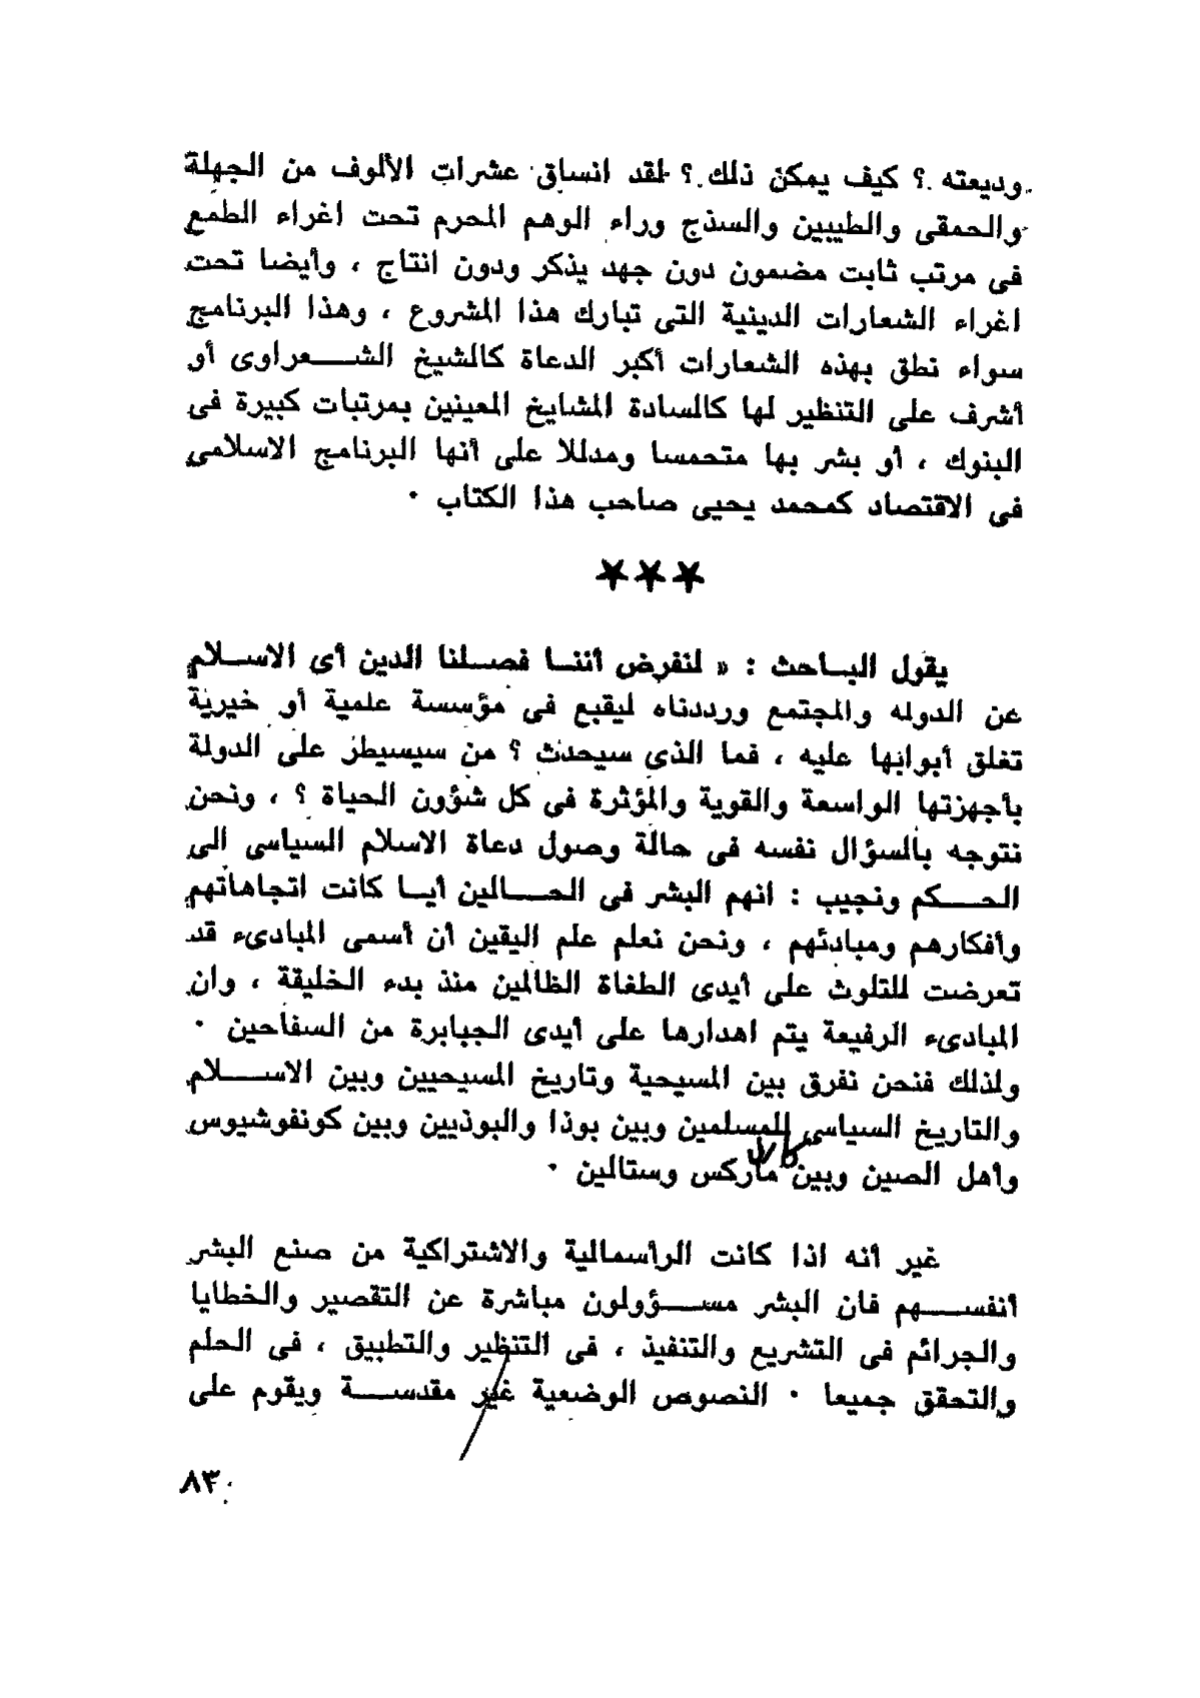 وديعته ؟ كيف يمكن ذلك ؟ لقد انساق عشرات الألوف من الجهلة
والحمقى والطيبين والسذج وراء الوهم المحرم تحت اغراء الطمع
فى مرتب ثابت مضمون دون جهد يذكر ودون انتاج ، وأيضا تحت
اغراء الشعارات الدينية التى تبارك هذا المشروع ، وهذا البرنامج
سواء نطق بهذه الشعارات أكبر الدعاة كالشيخ الشعراوى أو
أشرف على التنظير لها كالسادة المشايخ المعينين بمرتبات كبيرة فى
البنوك ، أو بشر بها متحمسا ومدللا على أنها البرنامج الاسلامى
فى الاقتصاد كمحمد يحيى صاحب هذا الكتاب ٠
★★★
يقول الباحث : « لنفرض أننا فصلنا الدين أى الاسلام
عن الدوله والمجتمع ورددناه ليقبع فى مؤسسة علمية أو خيرية
تغلق أبوابها عليه ، فما الذى سيحدث ؟ من سيسيطر على الدولة
بأجهزتها الواسعة والقوية والمؤثرة فى كل شؤون الحياة ؟ ، ونحن
نتوجه بالسؤال نفسه فى حالة وصول دعاة الاسلام السياسى الى
الحكم ونجيب : انهم البشر فى الحالين أيا كانت اتجاهاتهم
وأفكارهم ومبادئهم ، ونحن نعلم علم اليقين أن أسمى المبادىء قد
تعرضت للتلوث على أيدى الطغاة الظالمين منذ بدء الخليقة ، وان
المبادىء الرفيعة يتم اهدارها على أيدى الجبابرة من السفاحين ٠
ولذلك فنحن نفرق بين المسيحية وتاريخ المسيحيين وبين الاسلام
والتاريخ السياسى للمسلمين وبين بوذا والبوذيين وبين كونفوشيوس
وأهل الصين وبين ماركس وستالين ٠
غير أنه اذا كانت الرأسمالية والاشتراكية من صنع البشر
أنفسهم فان البشر مسؤولون مباشرة عن التقصير والخطايا
والجرائم فى التشريع والتنفيذ ، فى التنظير والتطبيق ، فى الحلم
والتحقق جميعا ٠ النصوص الوضعية غير مقدسة ويقوم على
٨٣